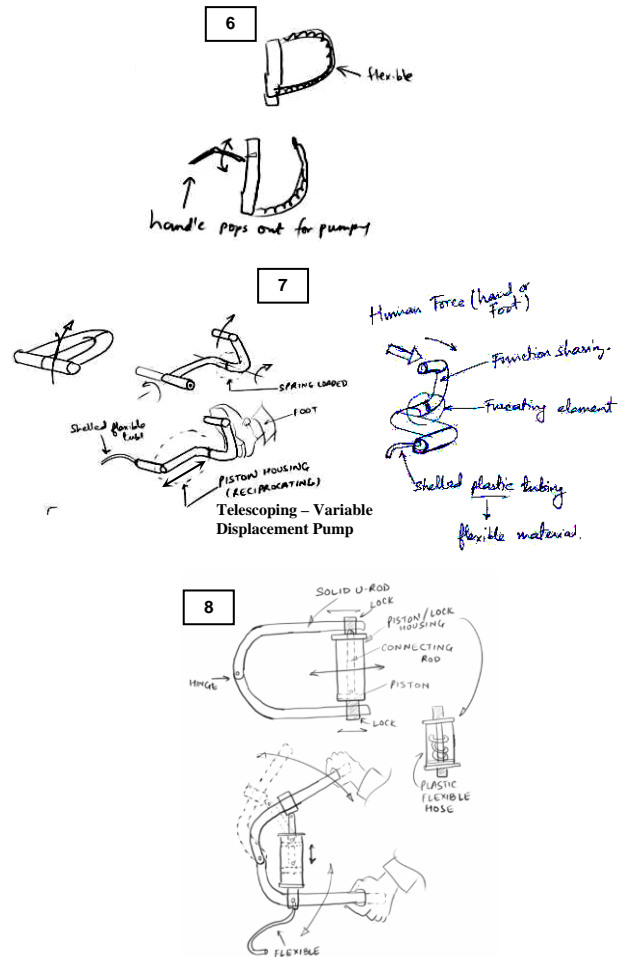 6
flexible
handle pops out for pumping
7
SPRING LOADED
FOOT
Shelled flexible
tube
PISTON HOUSING
(RECIPROCATING)
Telescoping – Variable
Displacement Pump
Human Force (hand or
Foot)
Function sharing.
Truncating element
Shelled plastic tubing
flexible material.
8
SOLID U-ROD
LOCK
PISTON/LOCK
HOUSING
CONNECTING
ROD
HINGE
PISTON
LOCK
PLASTIC
FLEXIBLE
HOSE
FLEXIBLE